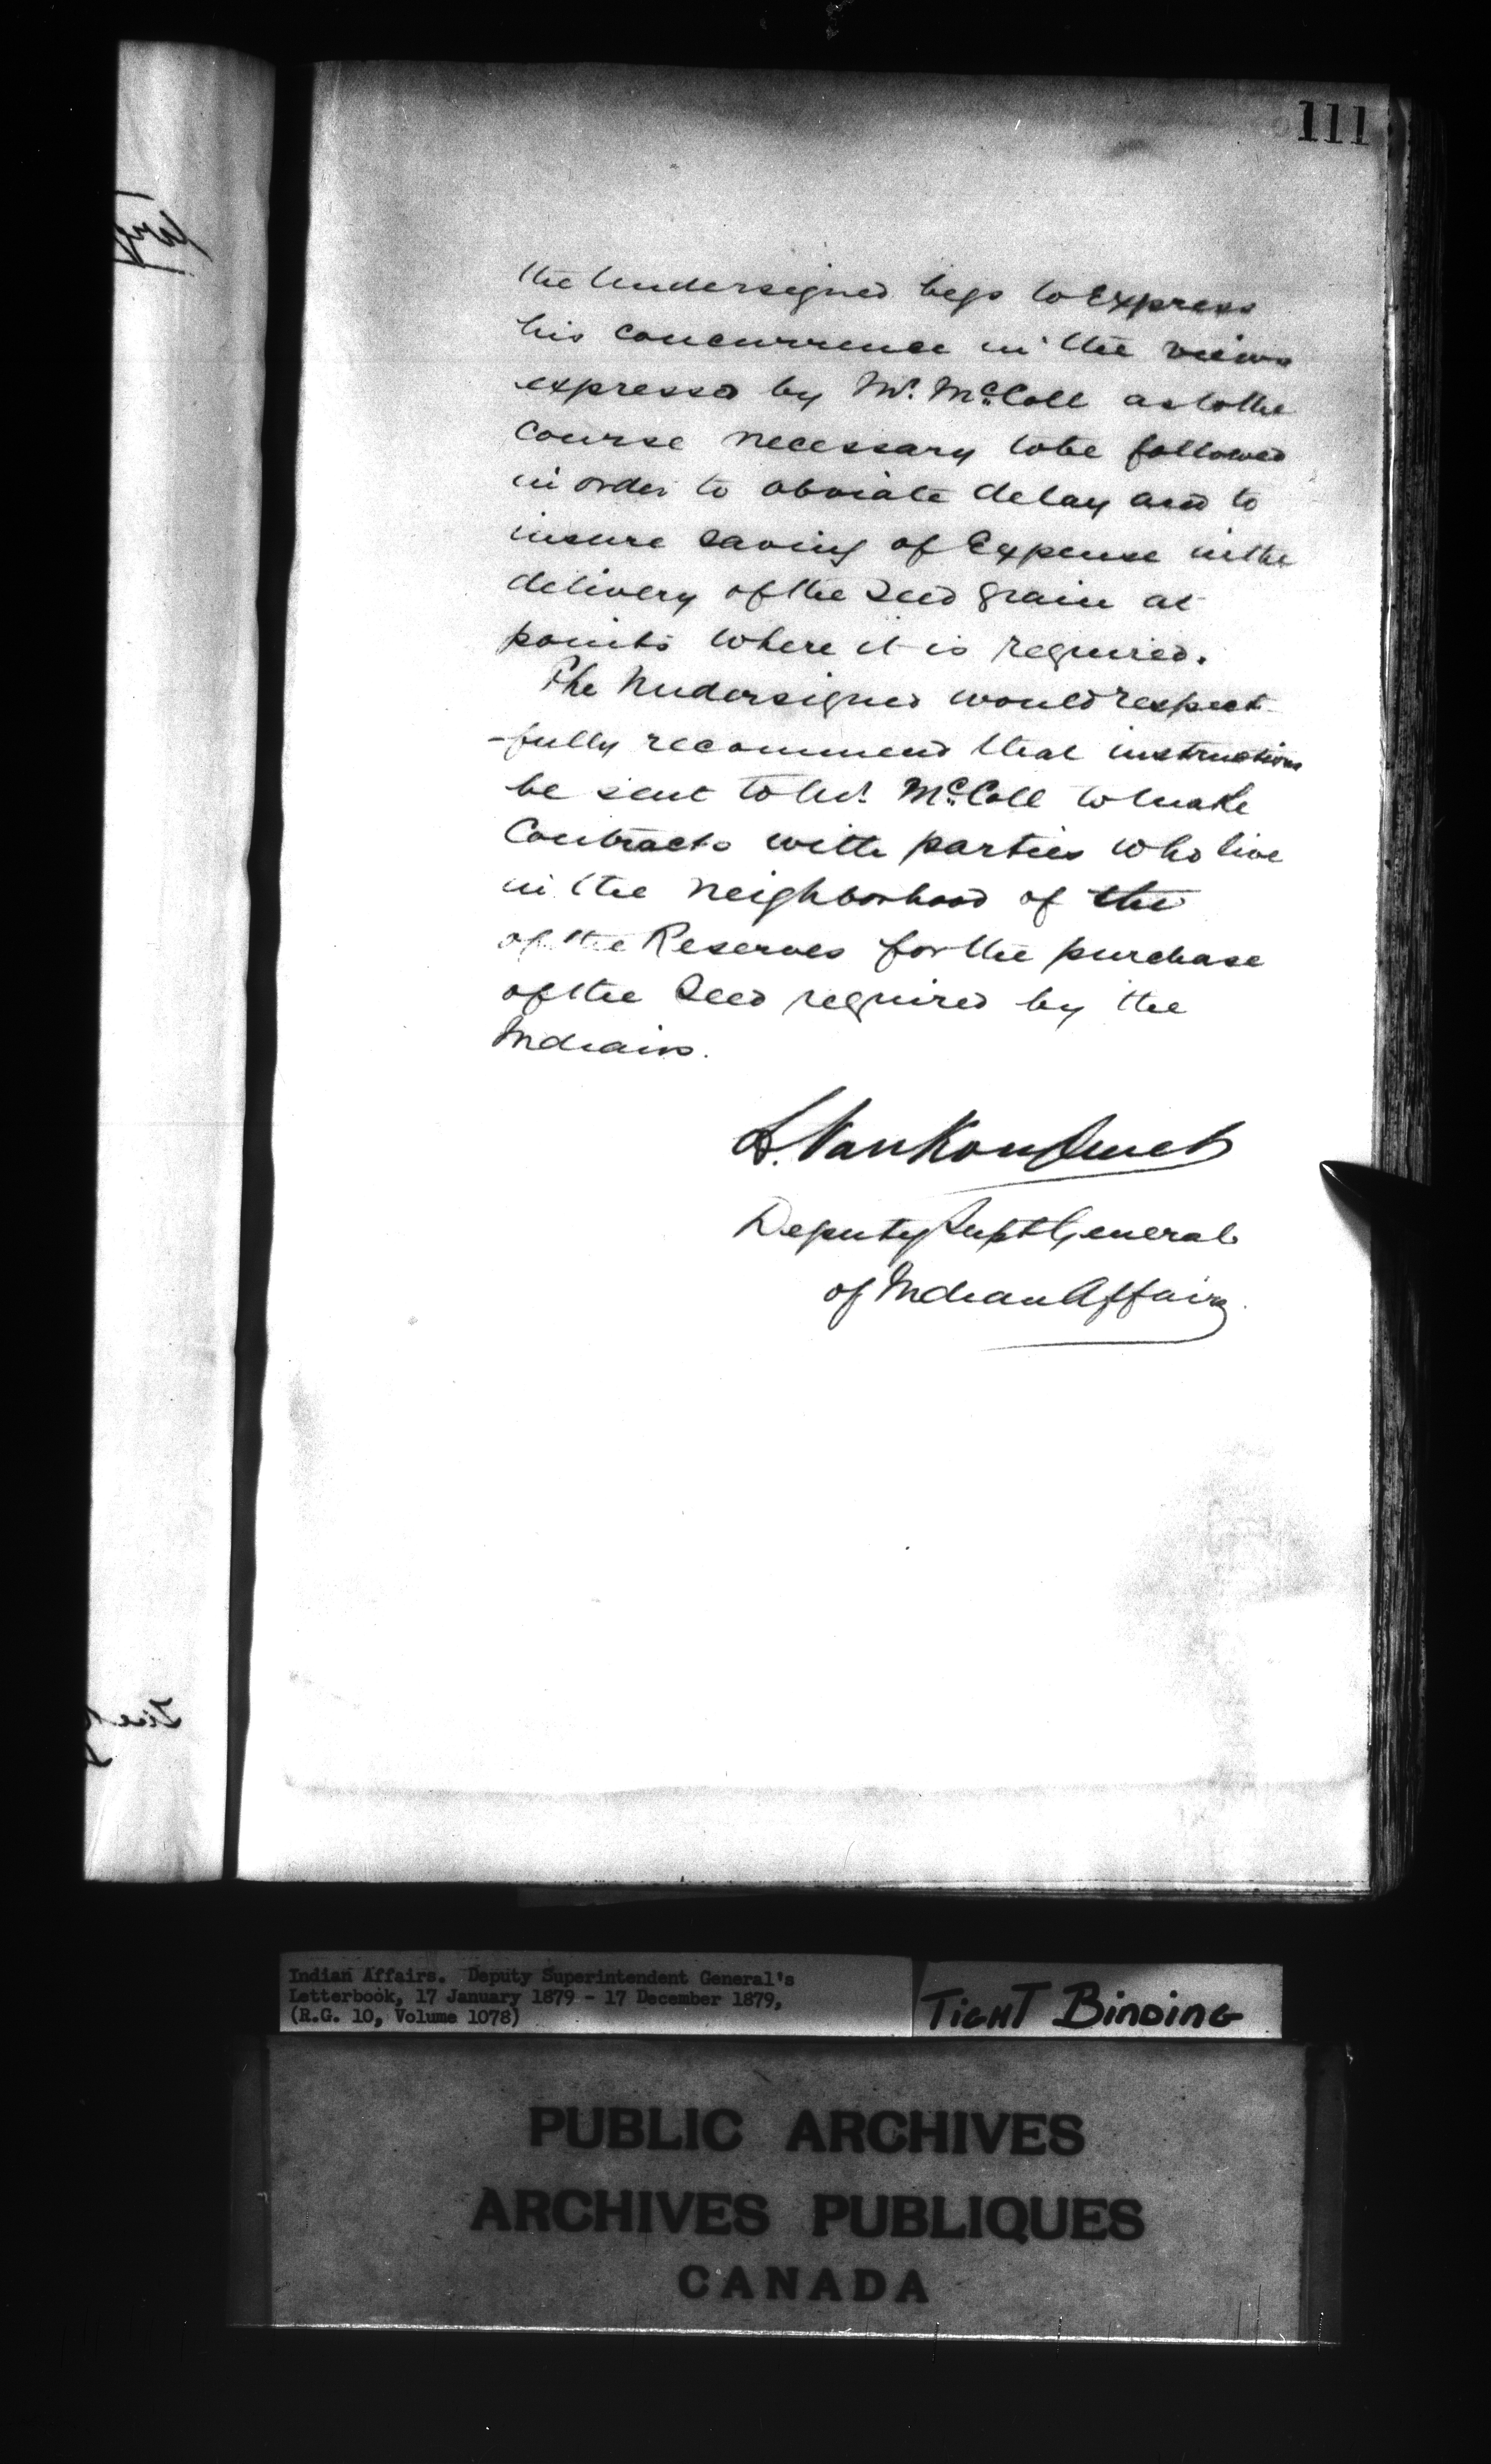 111
the Undersigned begs to Express
his concurrence in the views
expressed by Mr. McColl as to the
course necessary to be followed
in order to obviate delay and to
insure saving of Expense in the
delivery of the Seed Grain at
points where it is required.
The Undersigned would respect-
-fully recommend that instructions
be sent to Mr. McColl to make
Contracts with parties who live
in the neighborhood of the
of the Reserves for the purchase
of the Seed required by the
Indians.
L. VanKoughnet
Deputy Supt General
of Indian Affairs.
Indian Affairs. Deputy Superintendent General's
Letterbook, 17 January 1879 - 17 December 1879,
(R.G. 10, Volume 1078)
TIGHT BINDING
PUBLIC ARCHIVES
ARCHIVES PUBLIQUES
CANADA